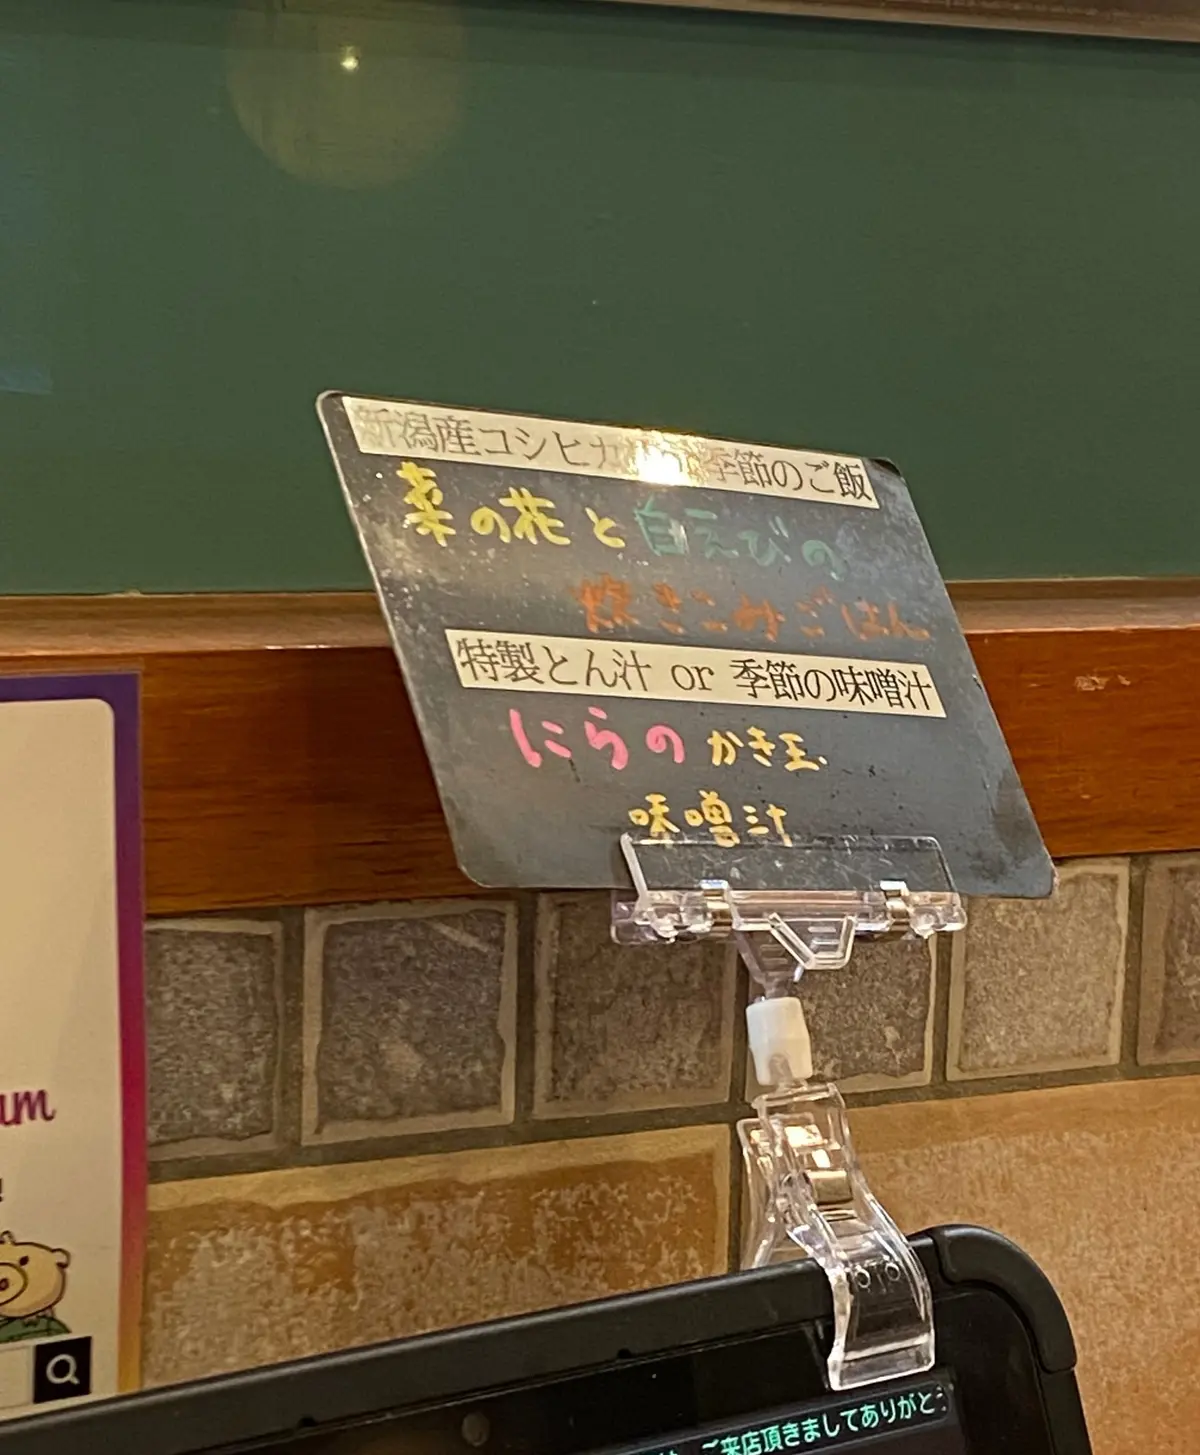 新潟産コシヒカリ 季節のご飯
菜の花と白えびの
炊きこみごはん
特製とん汁 or 季節の味噌汁
にらのかき玉
味噌汁
um
!
ご来店頂きましてありがとう